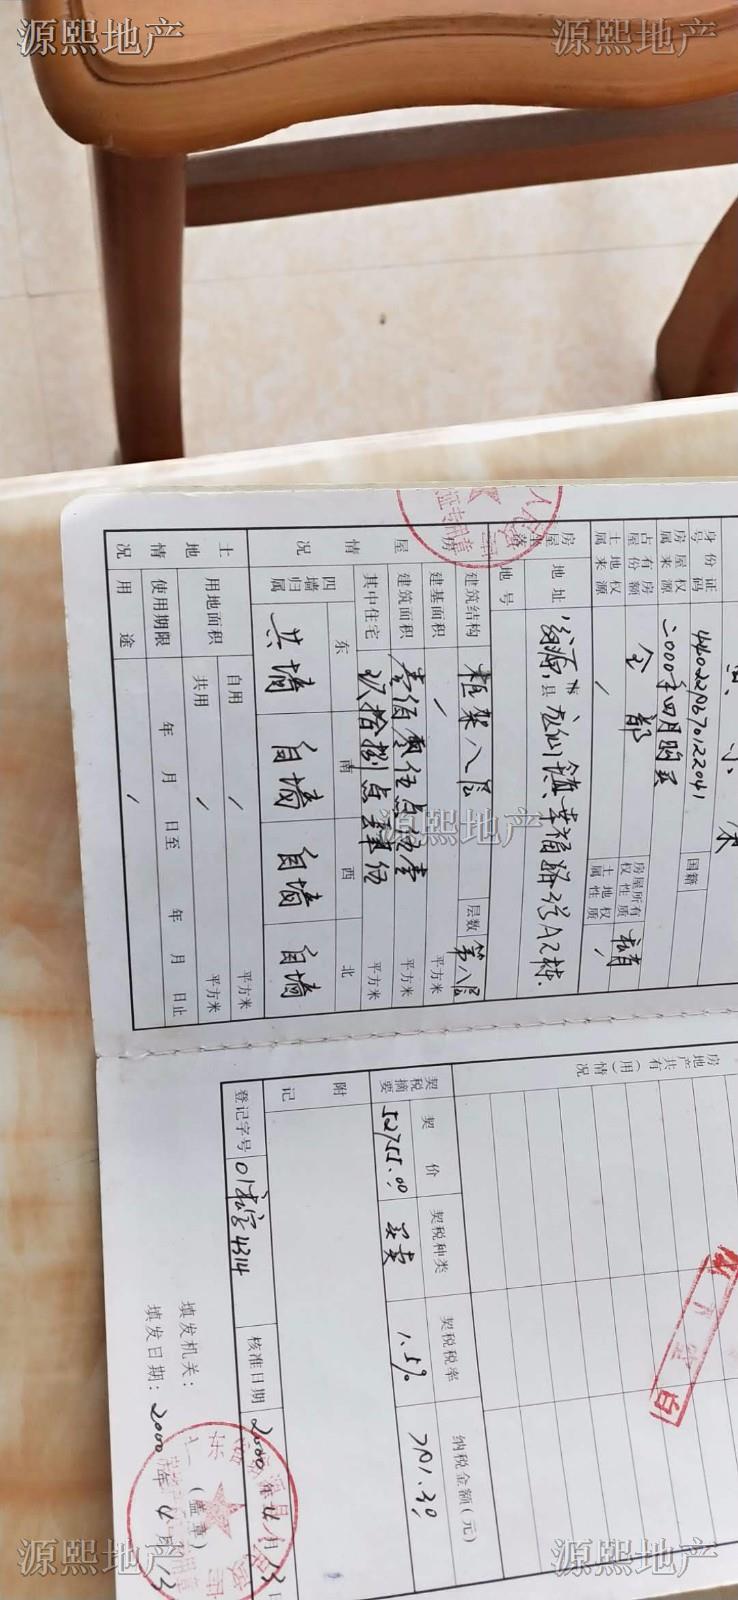 源熙地产
源熙地产
身份证号码
房屋权属来源
二000年四月购买
国籍
占有房屋份额
全部
房屋所有权性质
私有
土地权属来源
/
土地权属性质
/
房屋坐落
地址
翁源县龙仙镇幸福路
地号
房屋情况
建筑结构
框架八层
层数
第八层
建基面积
/
平方米
建筑面积
壹佰零伍点伍壹
平方米
其中住宅
玖拾捌点
伍
平方米
四墙归属
东
南
西
北
共墙
自墙
自墙
自墙
土地情况
用地面积
自用
/
平方米
共用
/
平方米
使用期限
年 月 日至 年 月 日止
用途
/
源熙地产
房地产共有(用)情况
契税摘要
契价
契税种类
契税税率
纳税金额(元)
52755.00
买卖
1.5%
791.30
附记
登记字号
01私字4314
核准日期
2000年4月13日
填发机关:
(盖章)
填发日期: 2000年4月13
源熙地产
源熙地产